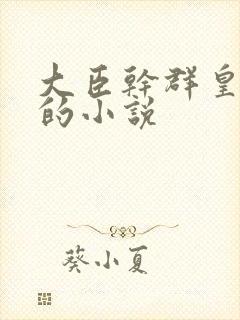 大臣幹群皇
的小說
葵小夏